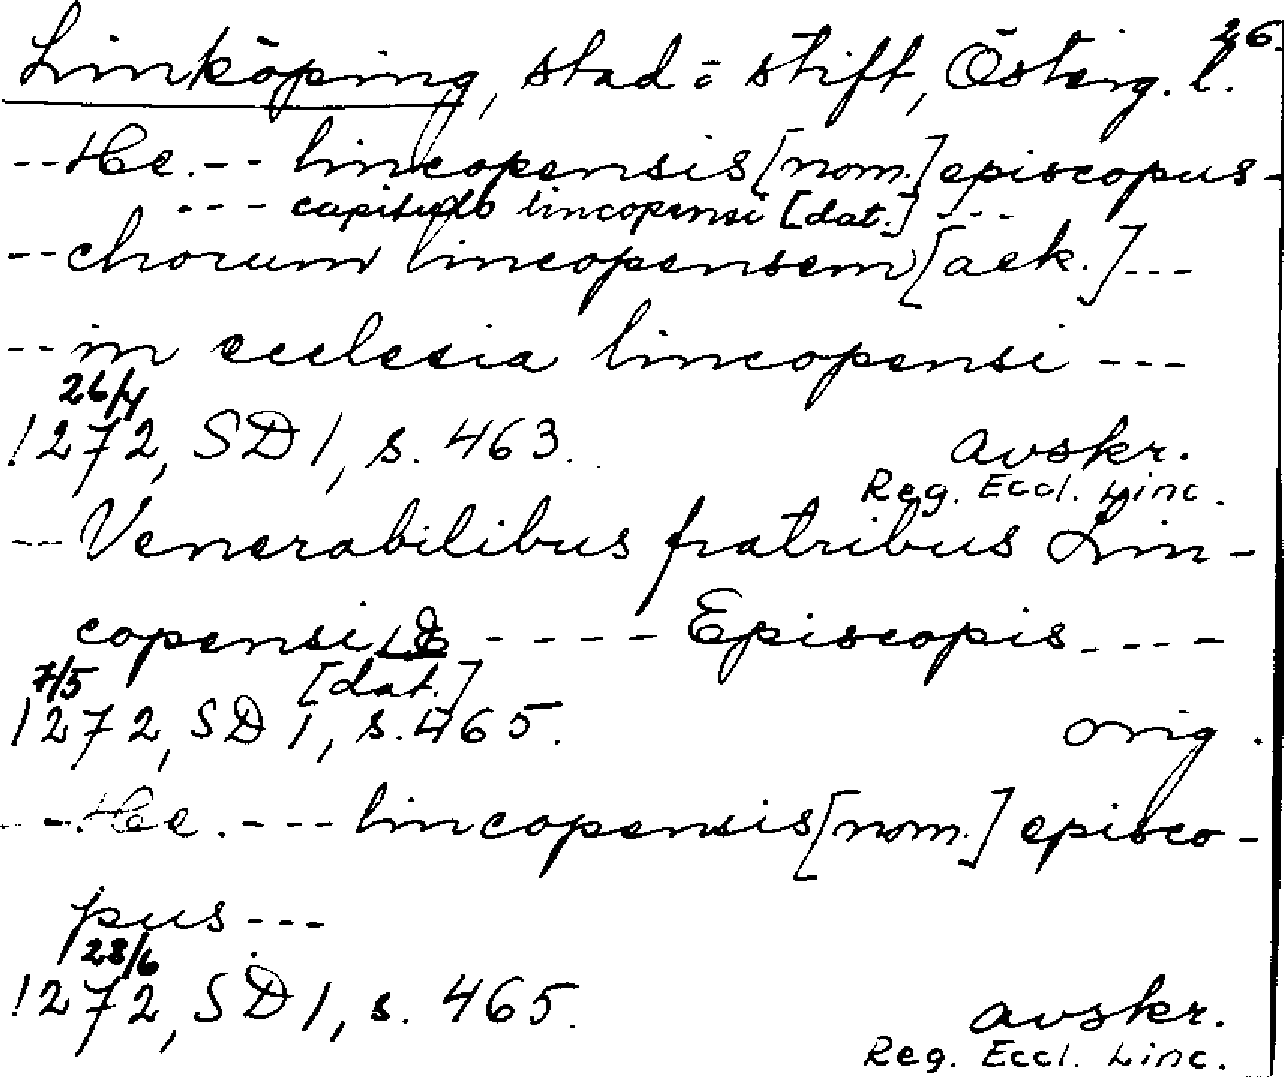 26.
Linköping, stad o stift, Österg. l.
--He.--- lincopensis [nom.] episcopus-
---- capitulo lincopensi [dat.] ---
--chorum lincopensem [ack.]---
--in ecclesia lincopensi ---
26/4
1272, SD 1, s. 463. avskr.
Reg. Eccl. Linc.
--Venerabilibus fratribus Lin-
copensi ----- Episcopis----
7/5 [dat.]
1272, SD 1, s. 465. orig.
--He.---- lincopensis [nom.] episco-
pus---
28/6
1272, SD 1, s. 465. avskr.
Reg. Eccl. Linc.